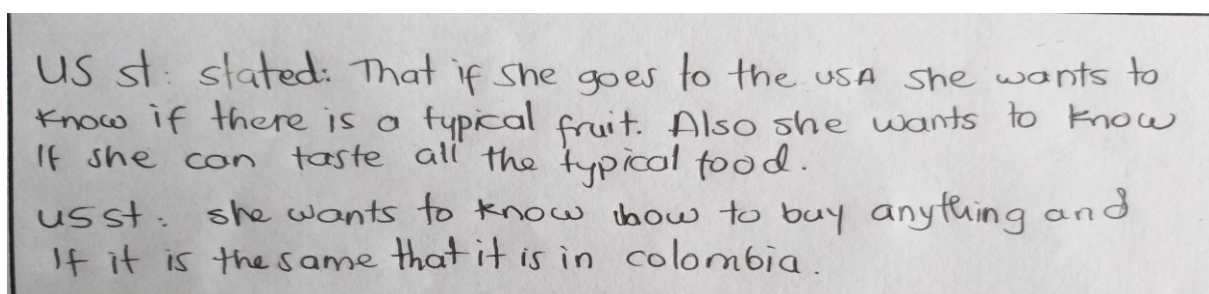 US st: stated: That if she goes to the USA she wants to
know if there is a typical fruit. Also she wants to know
If she can taste all the typical food.
us st: she wants to know how to buy anything and
If it is the same that it is in colombia.